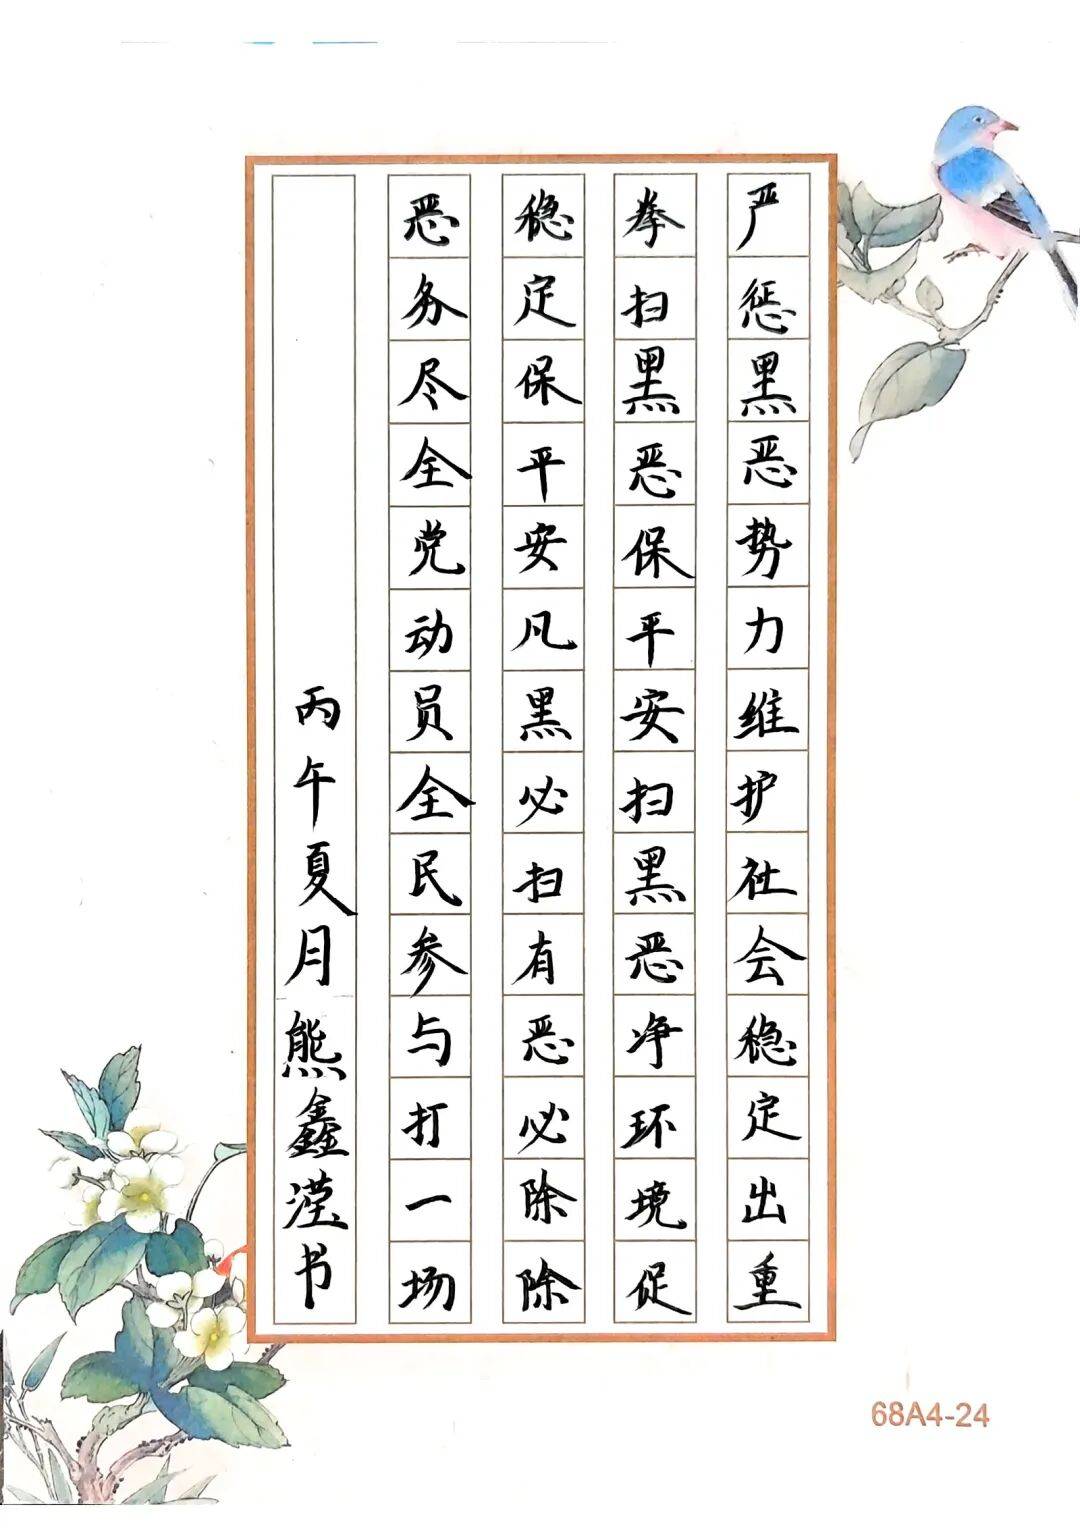 严惩黑恶势力维护社会稳定出重
拳扫黑恶保平安扫黑恶净环境促
稳定保平安凡黑必扫有恶必除除
恶务尽全党动员全民参与打一场
丙午夏月熊鑫滢书
68A4-24